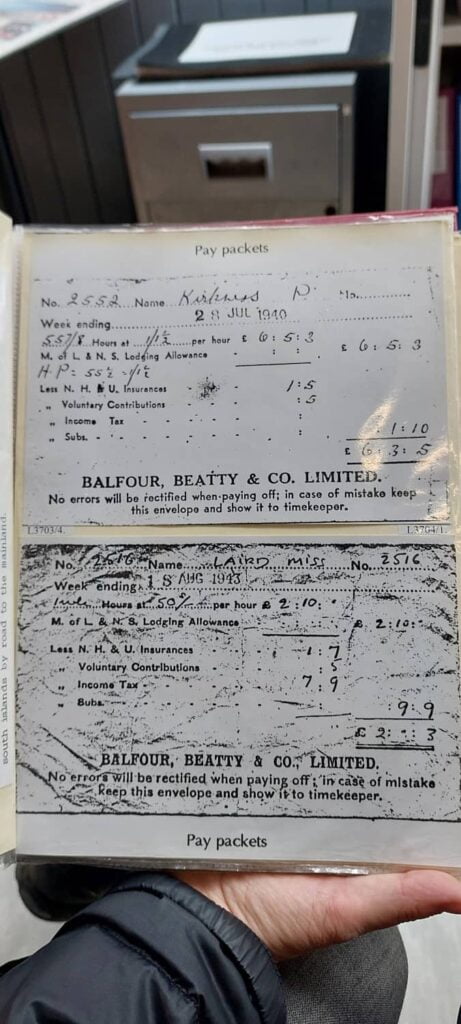 Pay packets
No. 2552 Name Kirkness P. No.
Week ending 28 JUL 1940
Hours at per hour £ 6 : 5 : 3 £ 6 : 5 : 3
M. of L. & N. S. Lodging Allowance : :
H.P = 55½
Less N. H. & U. Insurances 1 : 5
„ Voluntary Contributions : 5
„ Income Tax :
„ Subs. : 1 : 10
£ 6 : 3 : 5
BALFOUR, BEATTY & CO. LIMITED.
No errors will be rectified when paying off; in case of mistake keep
this envelope and show it to timekeeper.
L3703/4. L3704/1.
No. 2516 Name LAIRD MISS No. 2516
Week ending 18 AUG 1943
Hours at 50/- per hour £ 2 : 10 : £ 2 : 10 :
M. of L. & N. S. Lodging Allowance
Less N. H. & U. Insurances 1 : 7
„ Voluntary Contributions : 5
„ Income Tax 7 : 9
„ Subs. 9 : 9
£ 2 : : 3
BALFOUR, BEATTY & CO., LIMITED.
No errors will be rectified when paying off; in case of mistake
keep this envelope and show it to timekeeper.
Pay packets
south islands by road to the mainland.